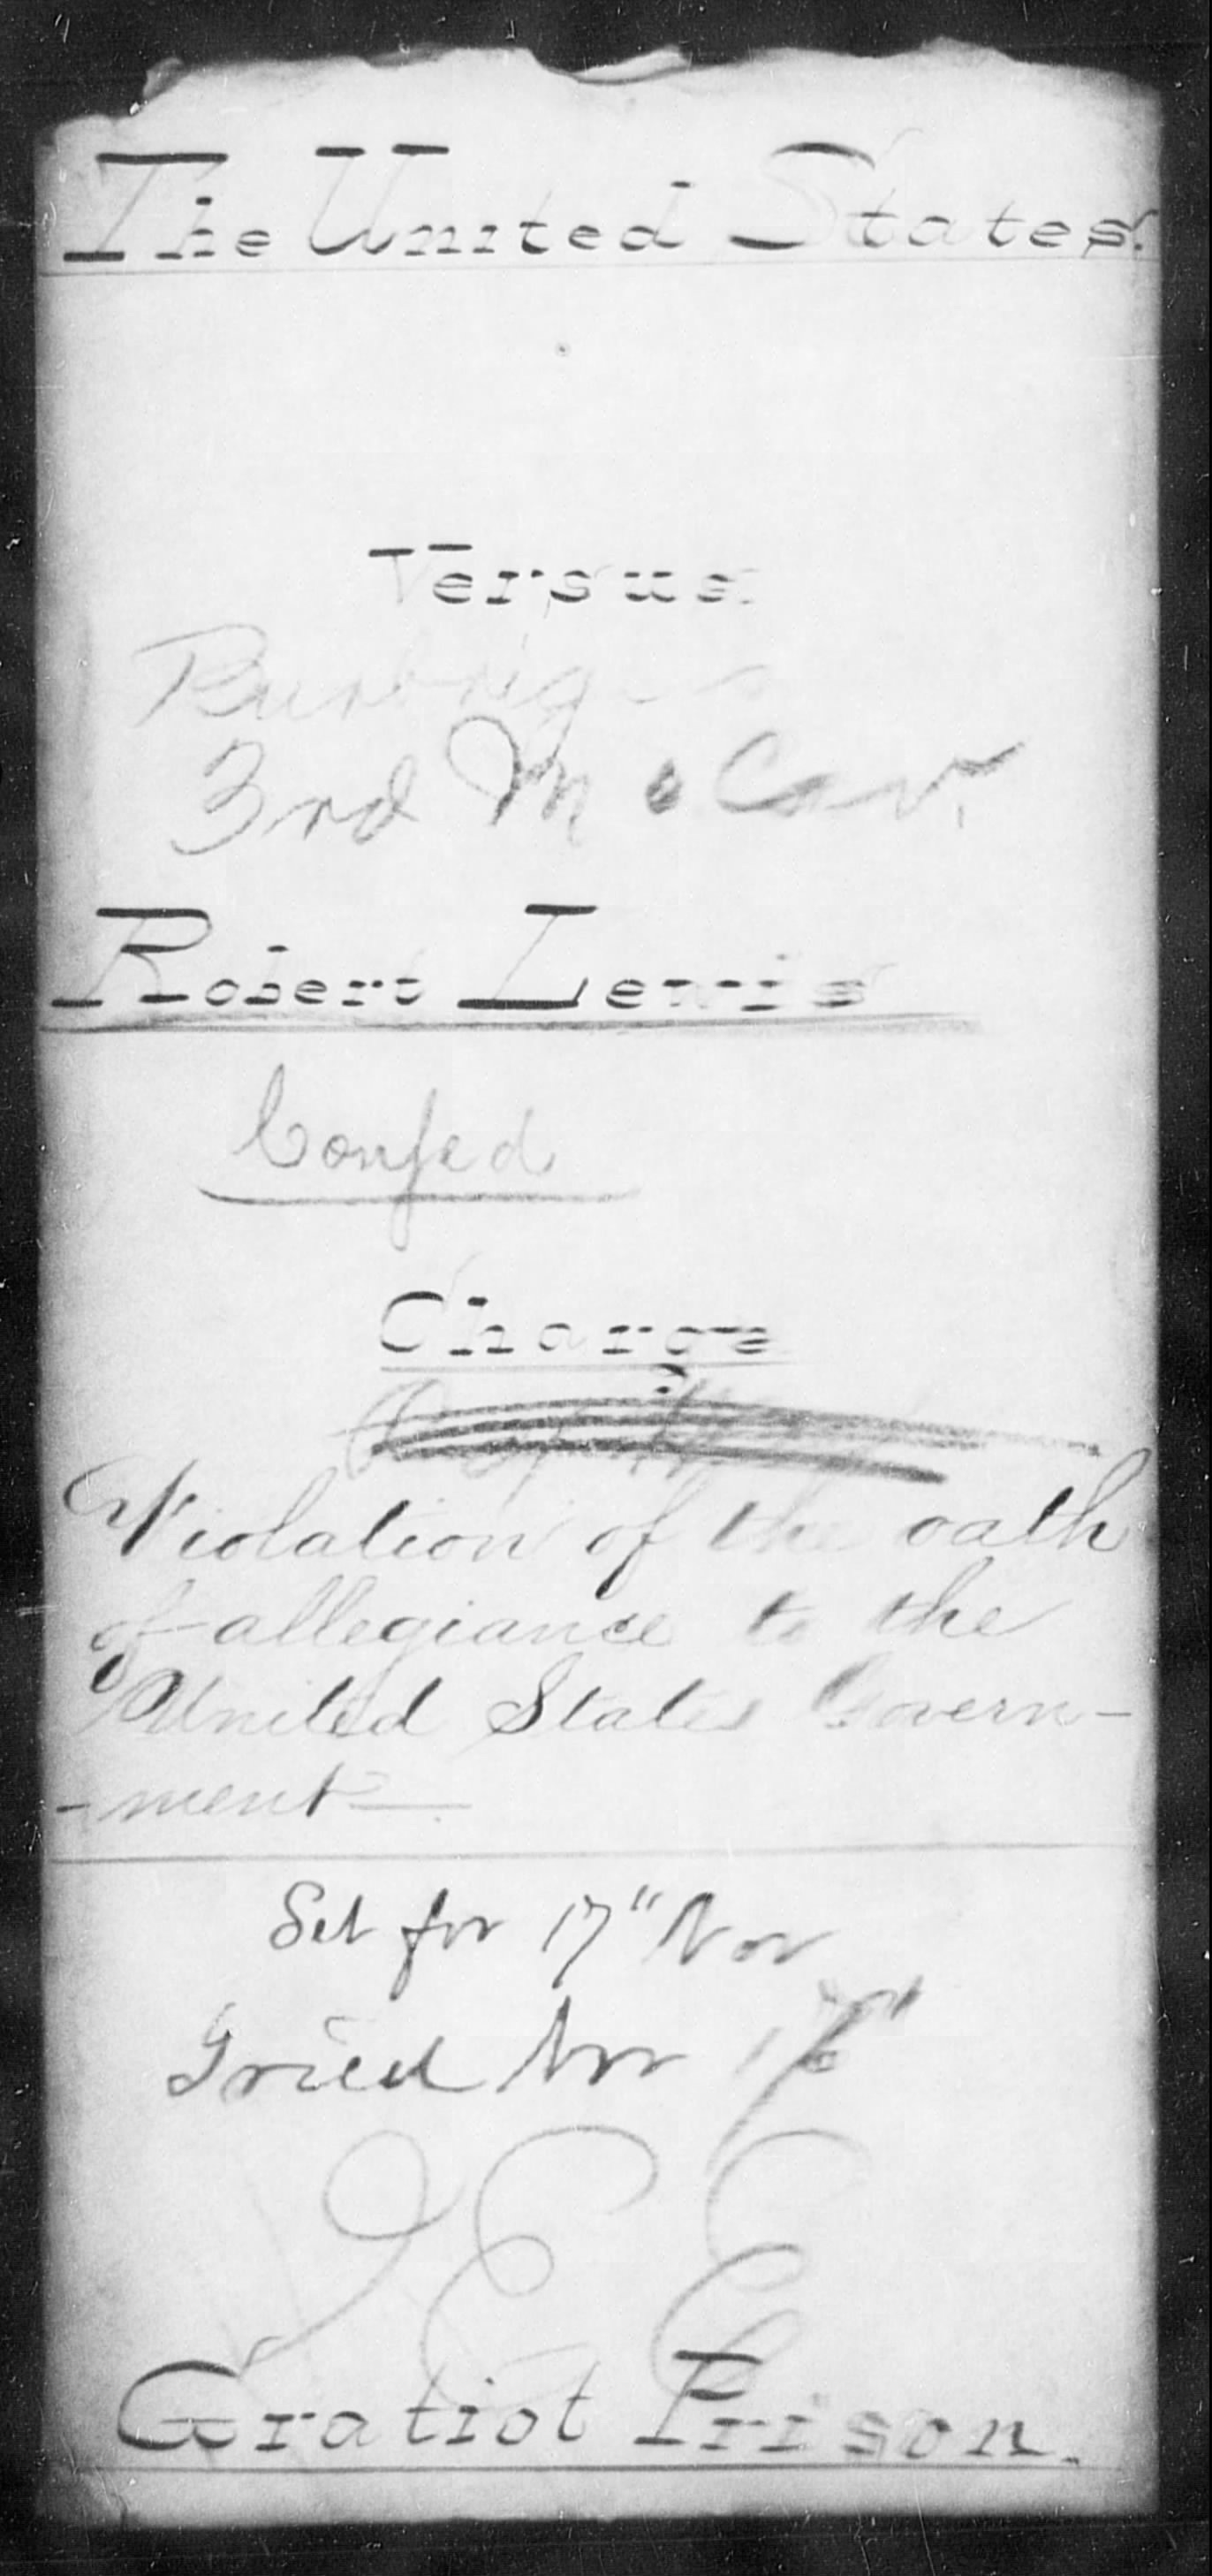 The United States.
Versus.
3rd Mo Cav.
Robert Lewis
Confed
Charge
Violation of the oath
of allegiance to the
United States Govern-
-ment
Set for 17" Nov
Tried Nov
Gratiot Prison.